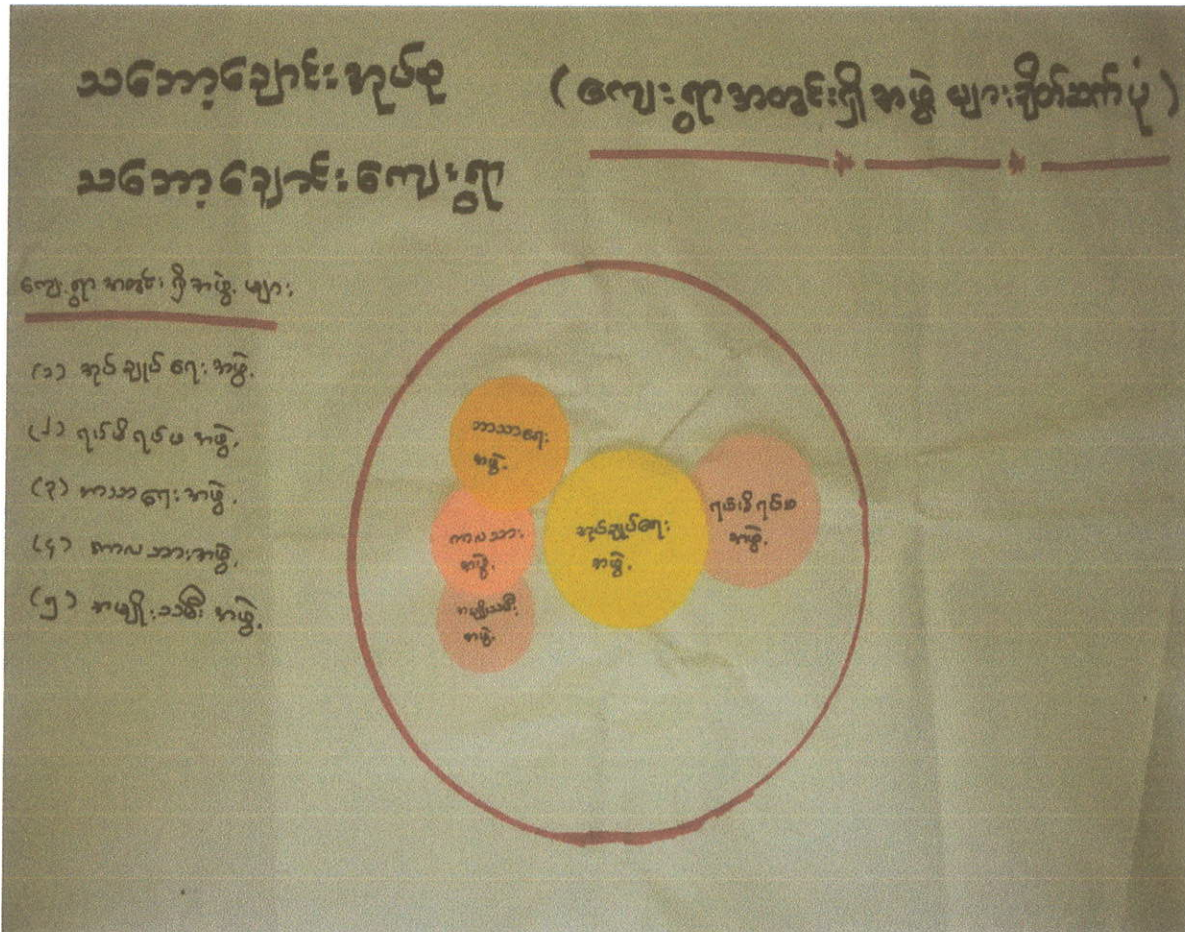 သဘော့ချောင်းအုပ်စု
သဘော့ချောင်းကျေးရွာ
(ကျေးရွာအတွင်းရှိအဖွဲ့များချိတ်ဆက်ပုံ)
ကျေးရွာအတွင်းရှိအဖွဲ့များ
(၁) အုပ်ချုပ်ရေးအဖွဲ့
(၂) ရပ်မိရပ်ဖအဖွဲ့
(၃) ဘာသာရေးအဖွဲ့
(၄) ကာလသားအဖွဲ့
(၅) အမျိုးသမီးအဖွဲ့
ဘာသာရေး
အဖွဲ့
ကာလသား
အဖွဲ့
အမျိုးသမီး
အဖွဲ့
အုပ်ချုပ်ရေး
အဖွဲ့
ရပ်မိရပ်ဖ
အဖွဲ့